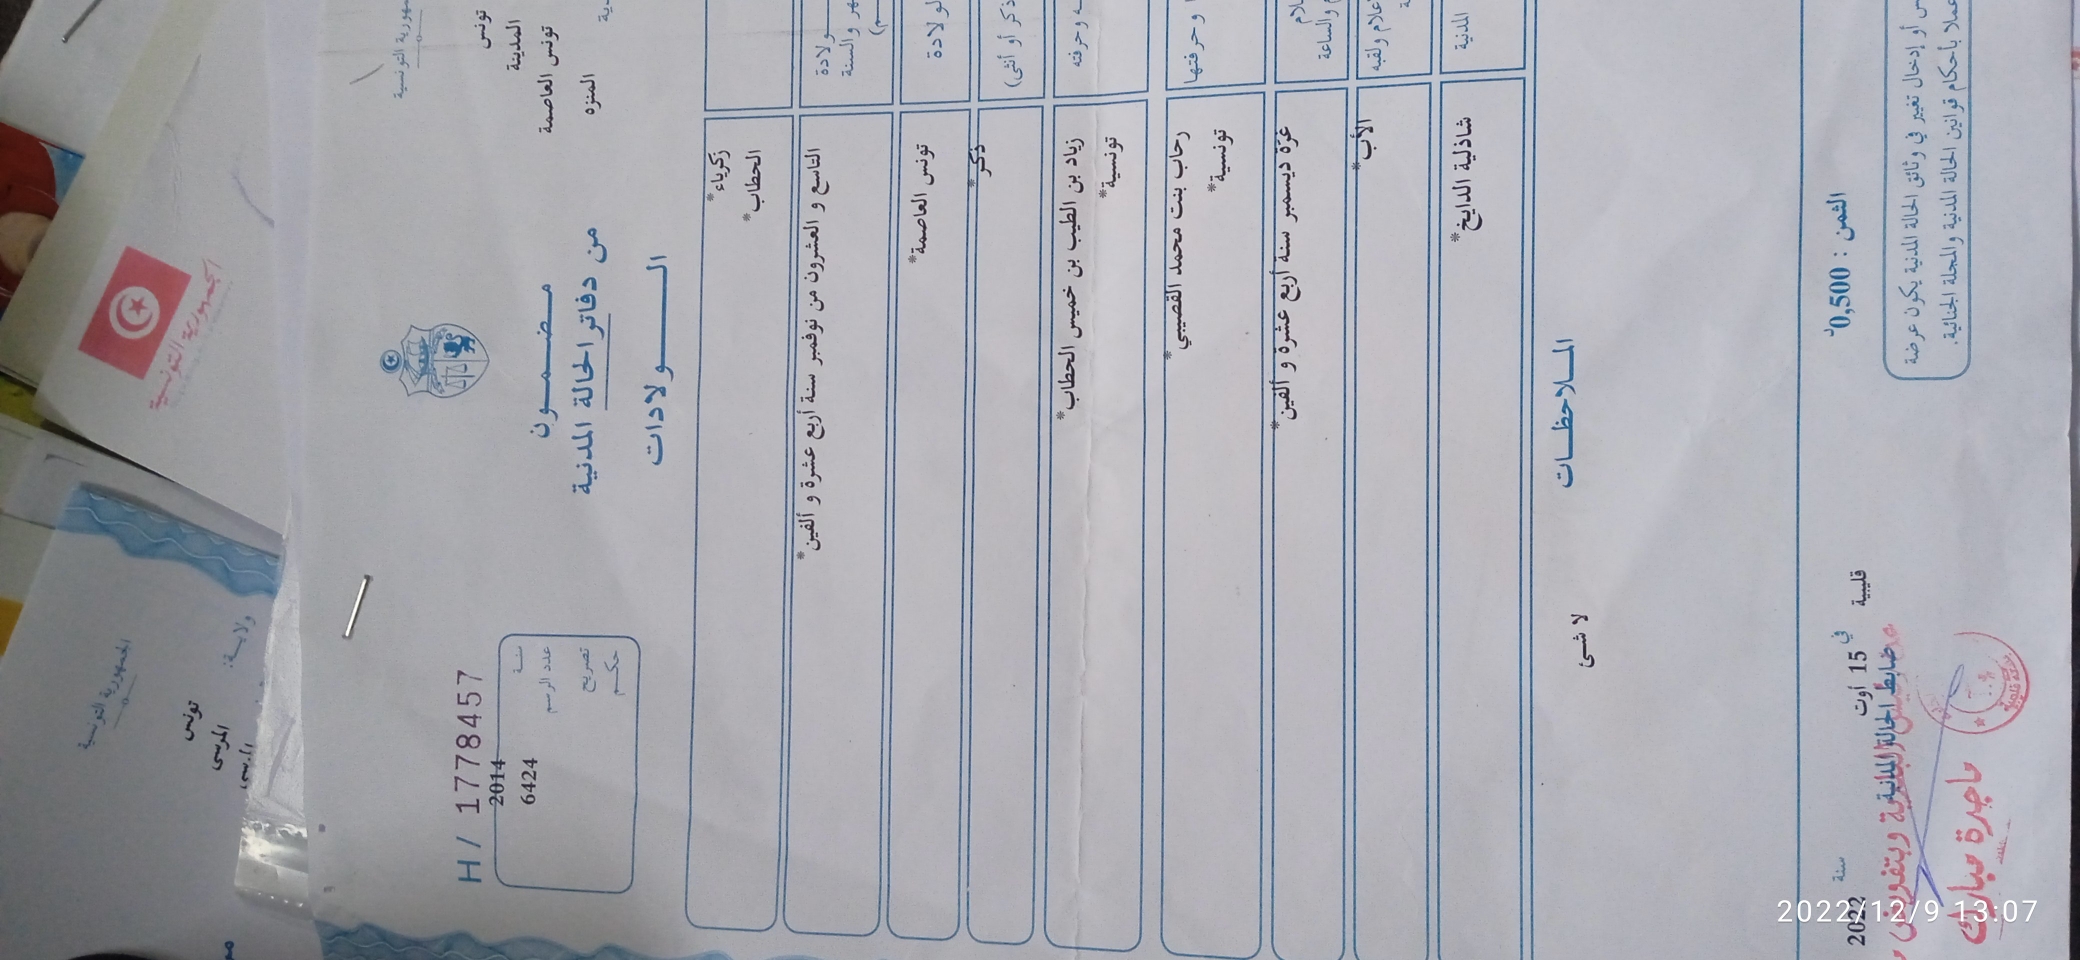 الجمهورية التونسية
تونس
المدينة
تونس العاصمة
المنزه
مضمـــون
من دفاتر الحالة المدنية
الـــولادات
H / 17778457
سنة 2014
عدد الرسم 6424
تصريح
حكم
زكرياء*
الحطاب*
ولادة
التاسع و العشرون من نوفمبر سنة أربع عشرة و ألفين*
تونس العاصمة*
(ذكر أو أنثى)
ذكر*
زياد بن الطيب بن خميس الحطاب*
تونسية*
و حرفتها
رحاب بنت محمد القصيبي*
تونسية*
والساعة
غرة ديسمبر سنة أربع عشرة و ألفين*
ولقبه
الأب*
المدنية
شاذلية الدايخ*
المـلاحظــات
لا شئ
الثمن : 0,500د
أو إدخال تغيير في وثائق الحالة المدنية يكون عرضة
عملا بأحكام قوانين الحالة المدنية والمجلة الجنائية.
قليبية في 15 أوت سنة 2022
ضابط الحالة المدنية
ماجدة مبارك
الجمهورية التونسية
الجمهورية التونسية
ولايــة:
تونس
المرسى
2022/12/9 13:07